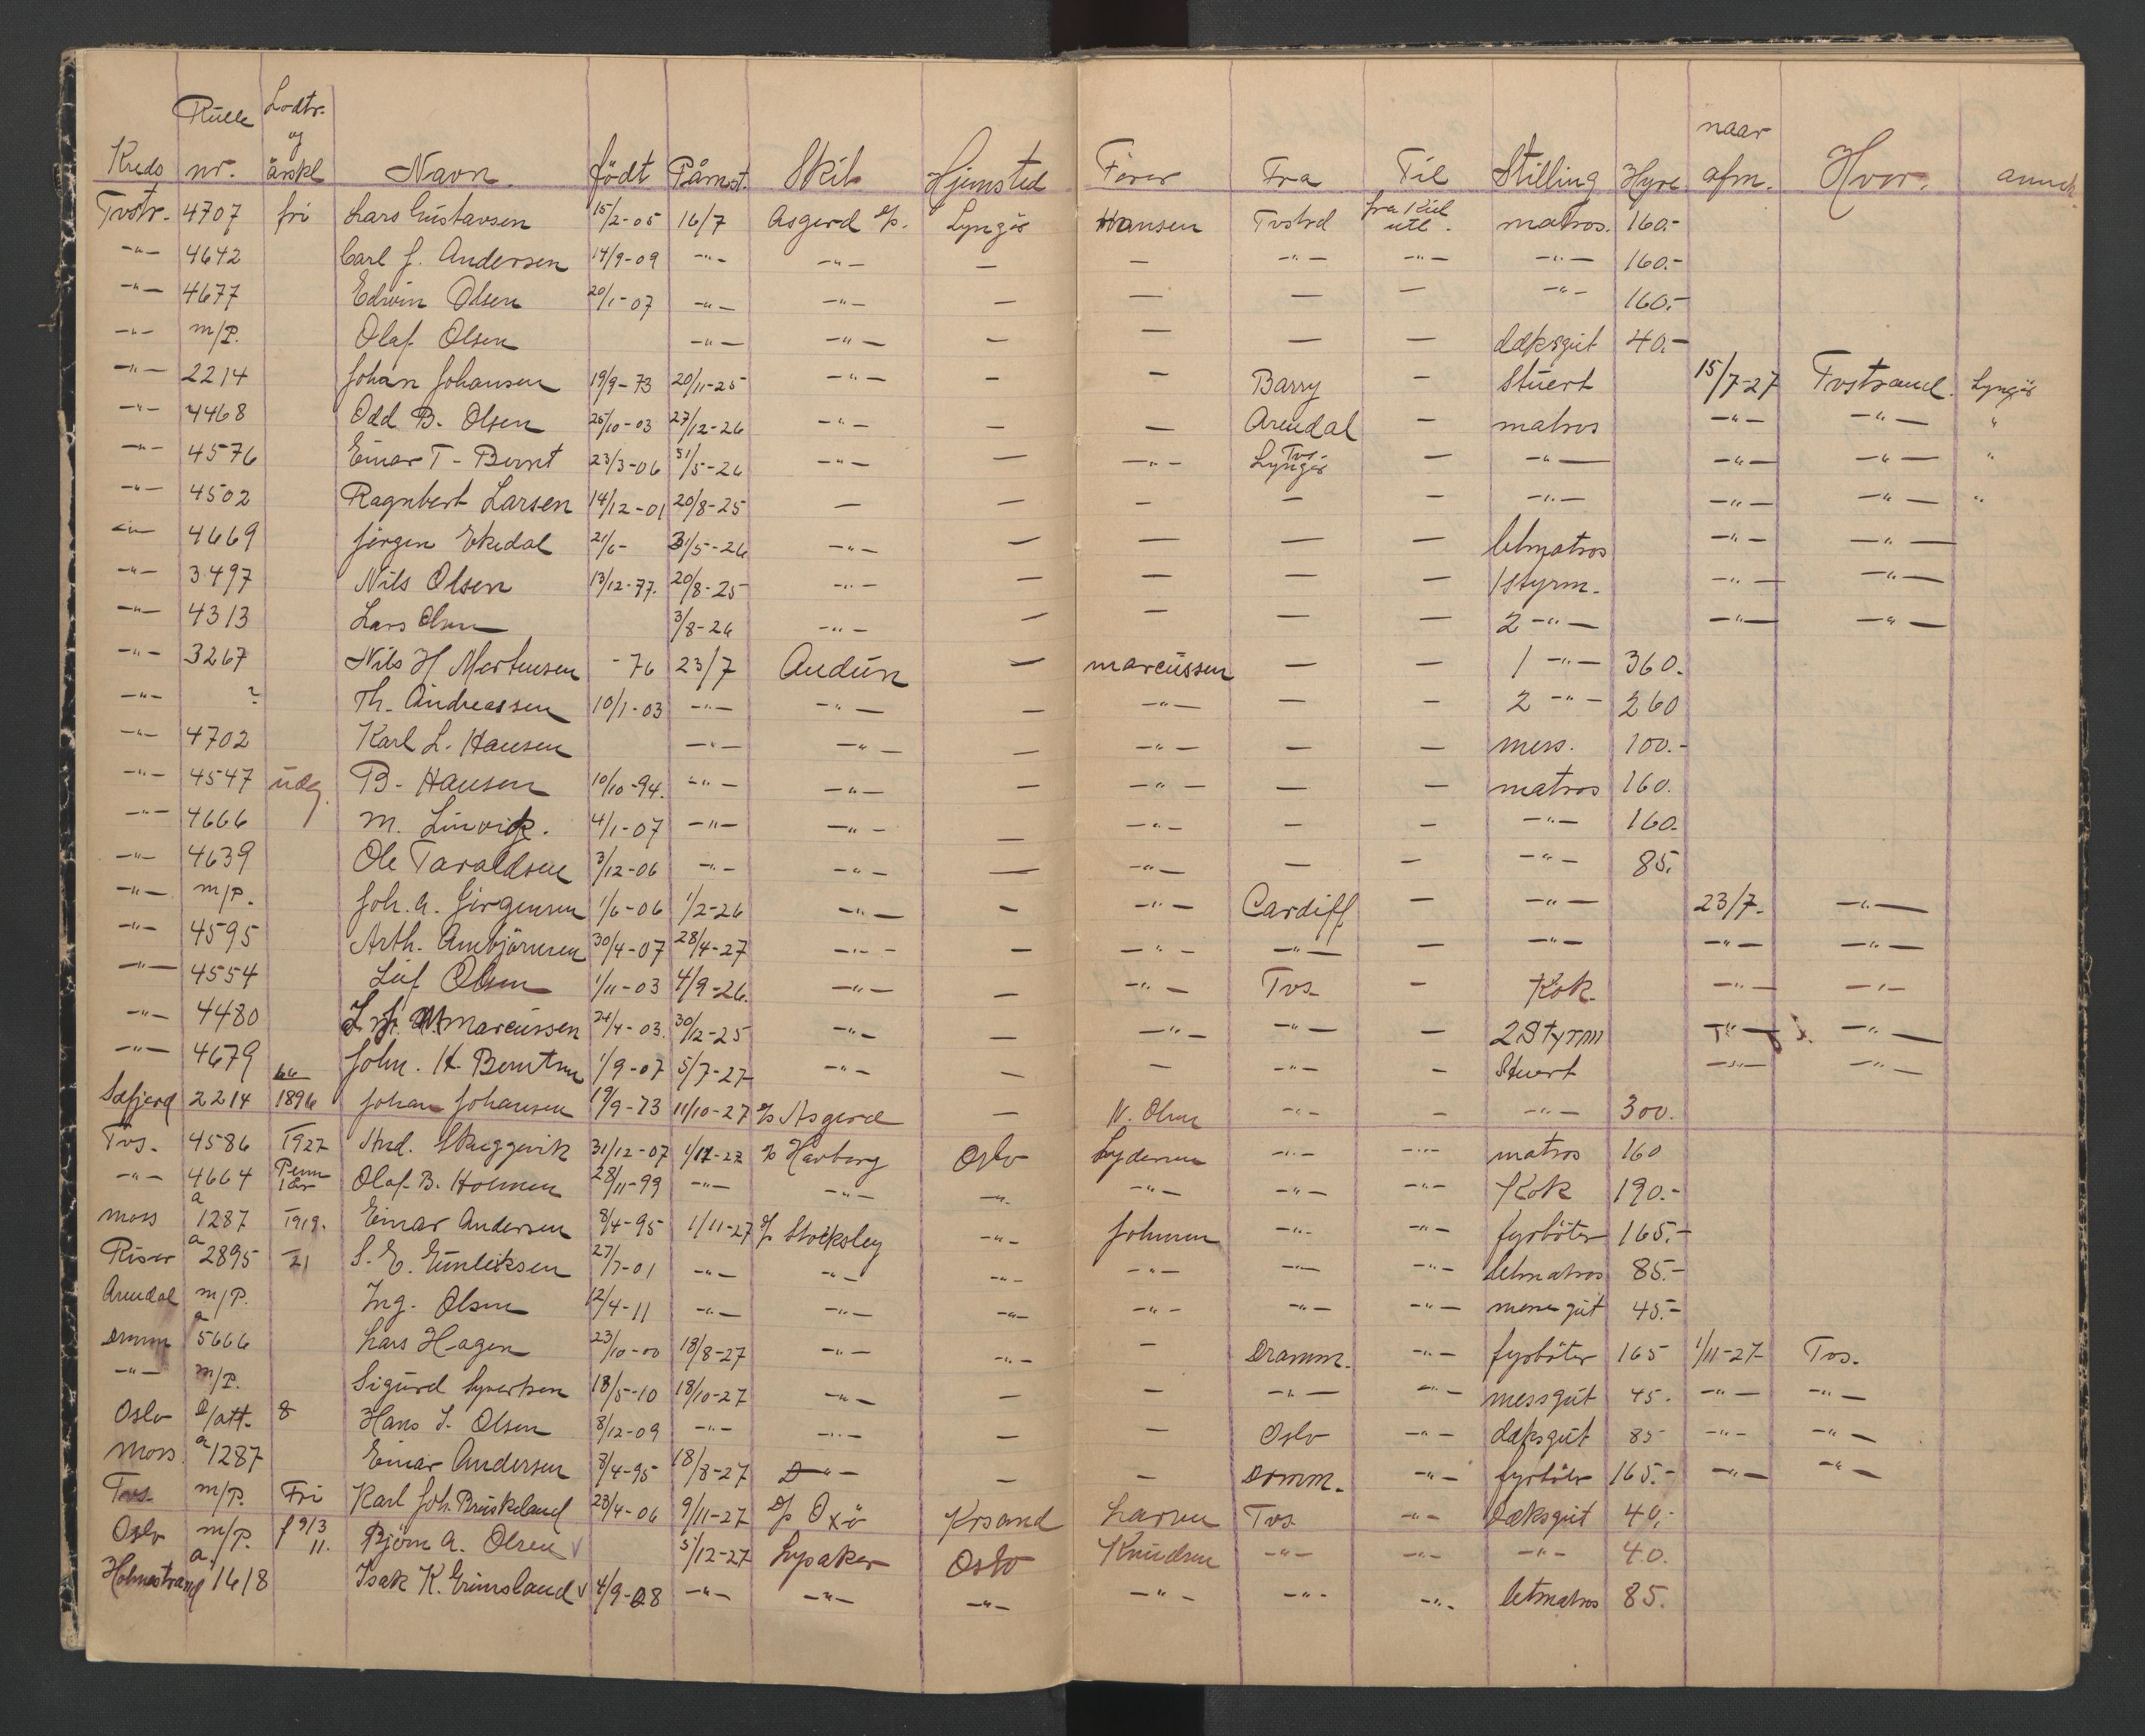 Kreds Rulle nr. Lodtr. og årskl Navn. født Påmst. Skib Hjemsted Fører Fra Til Stilling Hyre naar afm. Hvor. anmk
Tvstr. 4707 fri Lars Gustavsen 15/2-05 16/7 Asgerd s/s. Lyngör Hansen Tvstrd fra Kiel utl. matros. 160.-
-"- 4642 Carl J. Andersen 14/9-09 -"- -"- — — -"- -"- -"- 160.-
-"- 4677 Edwin Olsen 20/1-07 -"- -"- — — — — -"- 160.-
-"- m/P. Olaf Olsen -"- -"- — — — — dæksgut 40.-
-"- 2214 Johan Johansen 19/9-73 20/11-25 -"- - - Barry - Stuert 15/7-27 Tvstrand. Lyngör
-"- 4468 Odd B. Olsen 25/10-03 27/12-26 -"- — — Arendal - matros -"- -"- "
-"- 4576 Einar T- Bernt 23/3-06 31/5-26 -"- — -"- Tvs- Lyngör — -"- -"- -"- "
-"- 4502 Ragnbert Larsen 14/12-01 20/8-25 — — — — - -"- -"- -"- "
-"- 4669 Jörgen Ekedal 21/6- 31/5-26 -"- — — — — letmatros -"- -"-
-"- 3497 Nils Olsen 13/12-77. 20/8-25 -"- — — — — 1 styrm. -"- -"-
-"- 4313 Lars Olsen 3/8-26 -"- — — — — 2 -"- -"- -"-
-"- 3267 Nils H Mortensen -76 23/7 Audun — Marcussen — — 1 -"- 360.
-"- ? Th. Andreassen 10/1-03 -"- -"- — -"- — — 2 -"- 260
-"- 4702 Karl L. Hansen -"- -"- — -"- — — mess. 100.-
-"- 4547 udg. B. Hansen 10/10-94. -"- -"- — -"- — — matros 160.
-"- 4666 M. Linvik. 4/1-07 -"- -"- — -"- — - -"- 160.
-"- 4639 Ole Taraldsen 3/12-06 -"- -"- — -"- — — -"- 85.
-"- m/P. Joh. A. Jörgensen 1/6-06 1/2-26 -"- - -"- Cardiff — -"- 23/7- -"-
-"- 4595 Arth. Ambjörnsen 30/4-07 28/4-27 -"- - -"- -"- — -"- -"- -"-
-"- 4554 Leif Olsen 1/11-03 4/9-26. -"- — -"- Tvs - Kok. -"- -"-
-"- 4480 Marcussen 24/4-03. 30/12-25 -"- — -"- -"- — 2 Styrm -"- -"-
-"- 4679 John. H. Berntsen 1/9-07 5/7-27 -"- — — -"- - Stuert -"- -"-
2214 1896 Johan Johansen 19/9-73 11/10-27 s/s Asgerd — N. Olsen -"- - -"- 300.
Tvs. 4586 T927 And. Skeggevik 31/12-07 1/11-27 s/s Havborg Oslo Lydersen -"- -"- matros 160
-"- 4664 Olaf. B. Holmen 28/11-99 -"- -"- -"- -"- -"- -"- Kok 190.-
Moss a 1287 T919. Einar Andersen 8/4-95 1/11-27 s/s Stocksley -"- Johnsen -"- -"- fyrböter 165.-
Risör a 2895 21 S. E. Gunleiksen 27/7-01 -"- -"- -"- -"- -"- -"- letmatros 85.-
Arendal m/P. Ing. Olsen 12/4-11 -"- -"- -"- -"- -"- -"- messegut 45.-
Dramm a 5666 Lars Hagen 23/10-00 18/8-27 -"- -"- - Dramm. -"- fyrböter 165 1/11-27 Tvs.
-"- m/P. Sigurd Syvertsen 18/5-10 18/10-27 -"- — — -"- -"- messgut 45. -"- -"-
Oslo 8 Hans S. Olsen 8/12-09 -"- -"- — — Oslo -"- dæksgut 85 -"- -"-
Moss. a 1287 Einar Andersen 8/4-95 18/8-27 -"- — — Dramm. -"- fyrböter 165.- -"- -"-
Tvs. m/P. Fri Karl Joh. Bruskeland 23/4-06 9/11-27 s/s Oxö Krsand Larsen Tvs -"- Dæksgut 40.-
Oslo m/P. f 9/3 11. Björn A. Olsen √ 5/12-27 Lysaker Oslo Knudsen -"- -"- -"- 40.
Holmestrand a. 1618 Isak K. Grimsland √ 4/9-08 -"- -"- -"- -"- -"- -"- letmatros 85.